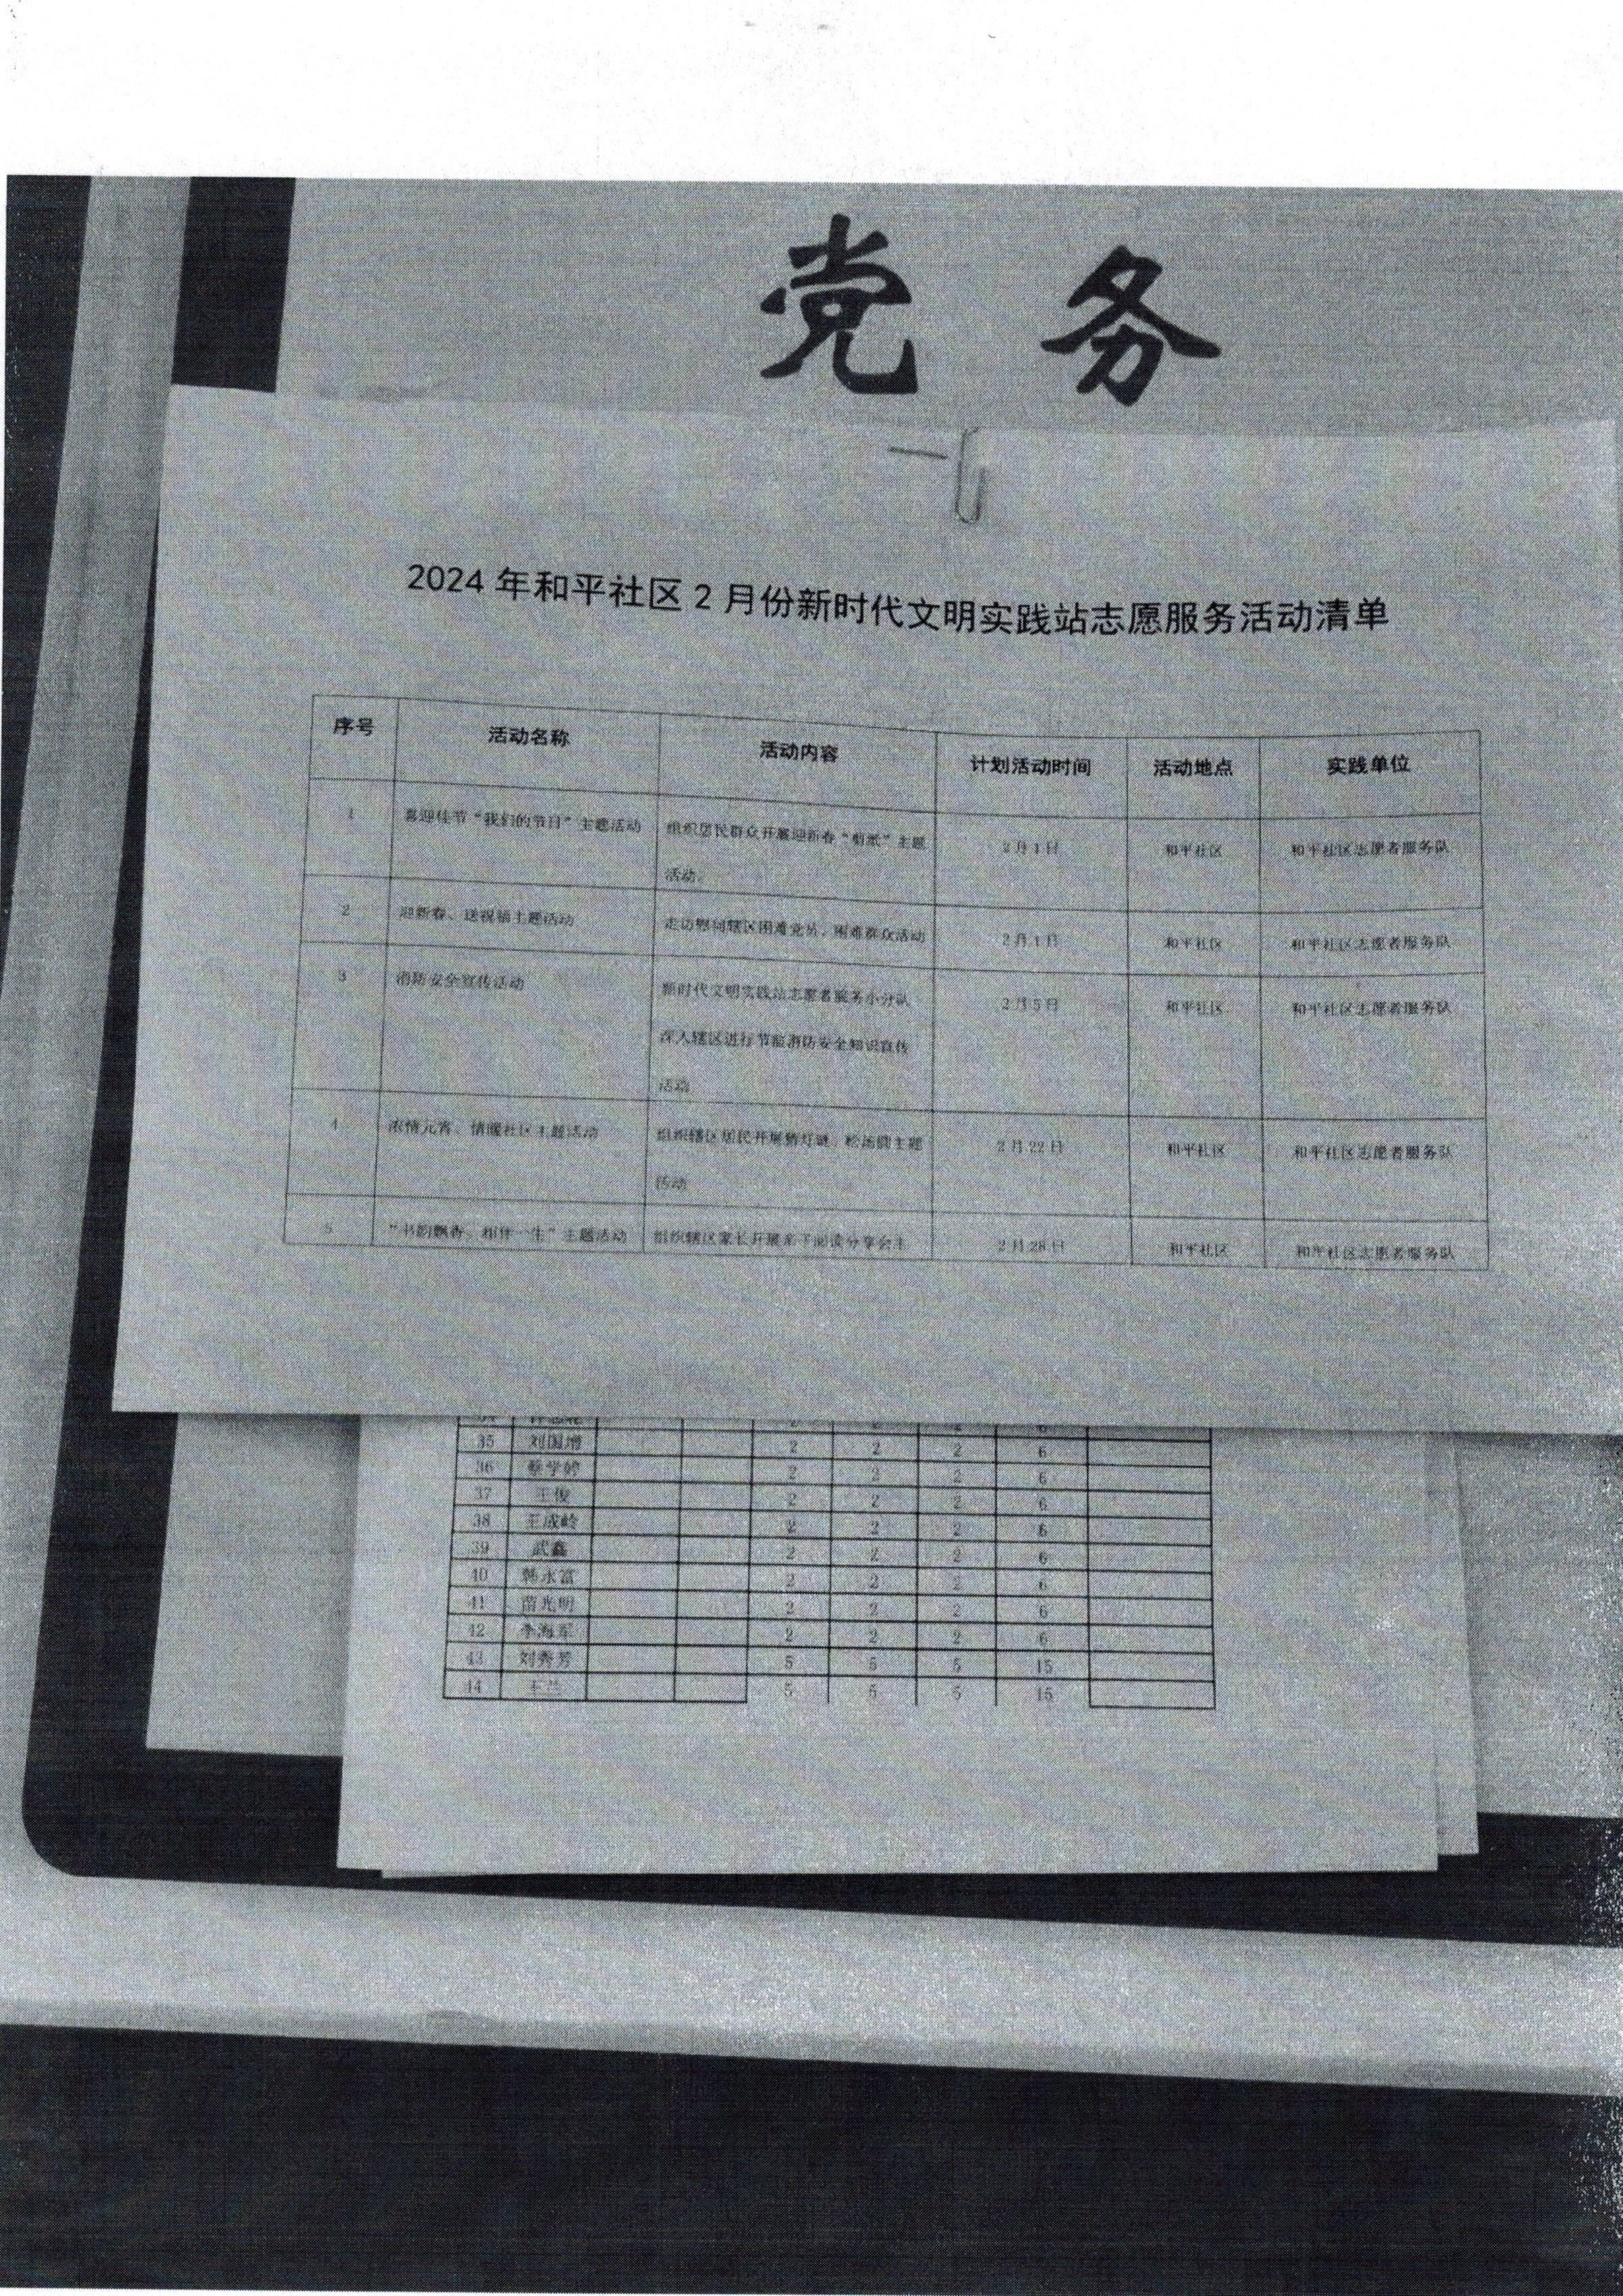 党 务
2024 年和平社区 2 月份新时代文明实践站志愿服务活动清单
序号 活动名称 活动内容 计划活动时间 活动地点 实践单位
1 喜迎佳节“我们的节日”主题活动 组织居民群众开展迎新春“剪纸”主题 2月1日 和平社区 和平社区志愿者服务队
活动。
2 迎新春、送祝福主题活动 走访慰问辖区困难党员、困难群众活动 2月1日 和平社区 和平社区志愿者服务队
3 消防安全宣传活动 新时代文明实践站志愿者服务小分队 2月5日 和平社区 和平社区志愿者服务队
深入辖区进行节前消防安全知识宣传
活动
4 浓情元宵、情暖社区主题活动 组织辖区居民开展猜灯谜、 主题 2月22日 和平社区 和平社区志愿者服务队
活动
5 “书韵飘香、相伴一生”主题活动 组织辖区家长开展亲子阅读分享会主 2月28日 和平社区 和平社区志愿者服务队
35 刘国增 2 2 2 6
36 蔡学婷 2 2 2 6
37 王俊 2 2 2 6
38 王成岭 2 2 2 6
39 武鑫 2 2 2 6
40 韩永富 2 2 2 6
41 苗光明 2 2 2 6
42 李海军 2 2 2 6
43 刘秀芳 5 5 5 15
44 王兰 5 5 5 15